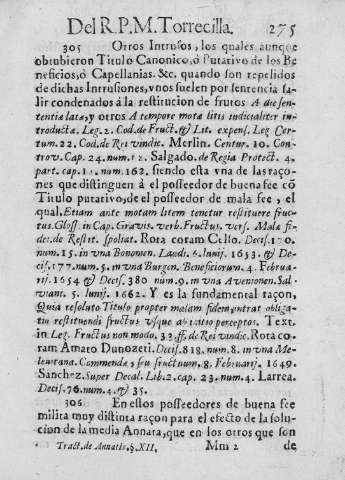 Del R.P.M. Torrecilla. 275
305 Otros Intrusos, los quales aunque
obtubieron Titulo Canonico, ò Putativo de los Be
neficios, ò Capellanias. &c. quando son repelidos
de dichas Intrusiones, vnos suelen por sentencia sa-
lir condenados à la restitucion de frutos A die sen-
tentiæ latæ, y otros A tempore motæ litis iudicialiter in-
troductæ. Leg. 2. Cod. de Fruct. & Lit. expens. Leg Cer-
tum. 22. Cod. de Rei vindic. Merlin. Centur. 10. Con-
trov. Cap. 24. num. 12. Salgado. de Regia Protect. 4.
part. cap. num. 162. siendo esta vna de las raço-
nes que distinguen â el posseedor de buena fee cõ
Titulo putativo, de el posseedor de mala fee, el
qual, Etiam ante motam litem tenetur restituere fruc-
tus. Gloss. in Cap. Gravis. verb. Fructus. vers. Malæ fi-
dei. de Restit. spoliat. Rota coram Celso. Decis.
num. 15. in vna Bononen. Laudi. 6. Iunij. 1653. & De-
cis. 177. num. 5. in vna Burgen. Beneficiorum. 4. Februa-
rij. 1654 & Decis. 380 num. 9. in vna Avenionen. Sal-
viani. 5. Iunij. 1662. Y es la fundamental raçon,
Quia resoluto Titulo propter malam fidem, intrat obliga-
tio restituendi fructus vsque ab initio perceptos. Text.
in Leg. Fructus non modo. 33. ff. de Rei vindic. Rota co-
ram Amato Dunozeti. Decis. 818. num. 8. in vna Me-
leuitana. Commendæ, seu fructuum. 8. Februarij. 1649.
Sanchez. Super Decal. Lib. 2. cap. 23. num. 4. Larrea.
Decis. 76. num. 4. & 35.
306 En estos posseedores de buena fee
milita muy distinta raçon para el efecto de la solu-
cion de la media Annata, que en los otros que son
Tract. de Annatis, §. XII. Mm 2 de